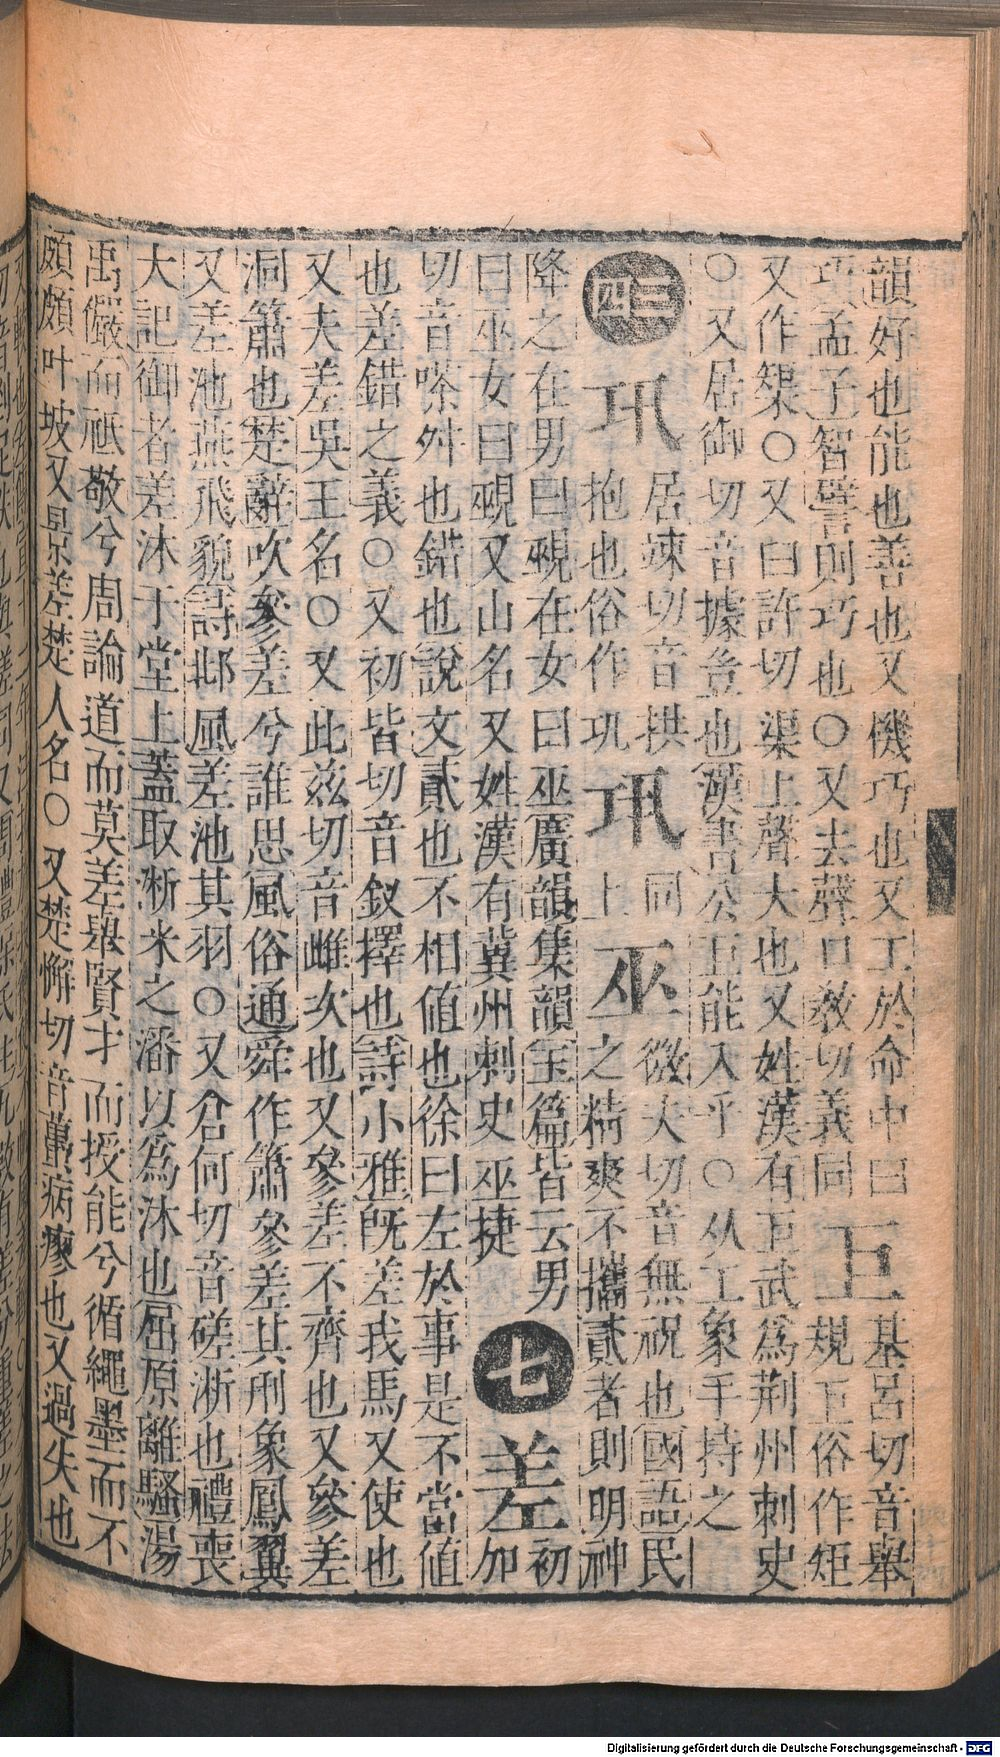 韻好也能也善也又機巧也又工於命中曰 巨 基呂切音舉
巧孟子智譬則巧也○又去聲口教切義同 規巨俗作矩
又作榘○又臼許切渠上聲大也又姓漢有巨武爲荆州刺史
○又居御切音據豈也漢書公巨能入乎○从工象手持之
三四 巩 居竦切音拱 抱也俗作巩 巩 同上 巫 微夫切音無祝也國語民之精爽不攜貳者則明神
降之在男曰覡在女曰巫廣韻集韻玉篇皆云男
曰巫女曰覡又山名又姓漢有冀州刺史巫捷 七 差 初加
切音嗏舛也錯也說文貳也不相值也徐曰左於事是不當值
也差錯之義○又初皆切音釵擇也詩小雅旣差我馬又使也
又夫差吳王名○又此兹切音雌次也又參差不齊也又參差
洞簫也楚辭吹參差兮誰思風俗通舜作簫參差其形象鳳翼
又差池燕飛貌詩邶風差池其羽○又倉何切音磋淅也禮喪
大記御者差沐于堂上蓋取淅米之潘以爲沐也屈原離騷湯
禹儼而祗敬兮周論道而莫差舉賢才而授能兮循繩墨而不
頗頗叶坡又景差楚人名○又楚懈切音蠆病瘳也又過失也
Digitalisierung gefördert durch die Deutsche Forschungsgemeinschaft - DFG